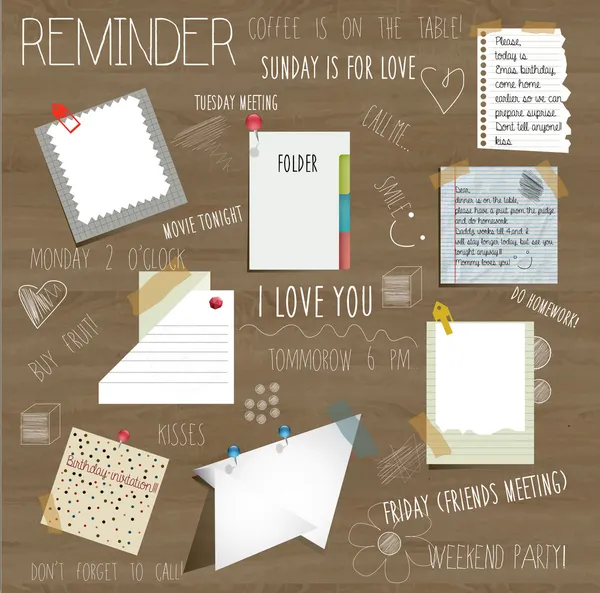 REMINDER
COFFEE IS ON THE TABLE!
SUNDAY IS FOR LOVE
Please,
today is
Emas birthday,
come home
earlier so we can
prepare suprise.
Dont tell anyone!!
kiss
TUESDAY MEETING
CALL ME...
FOLDER
SMILE
Dear,
dinner is on the table,
please have a fruit from the fridge
and do homework.
Daddy works till 4 and I
will stay longer today, but see you
tonight anyway!!!
Mommy loves you!
MOVIE TONIGHT
MONDAY 2 O'CLOCK
I LOVE YOU
DO HOMEWORK!
BUY FRUIT!
TOMMOROW 6 PM
KISSES
Birthday-invitation!!!
FRIDAY (FRIENDS MEETING)
WEEKEND PARTY!
DON'T FORGET TO CALL!